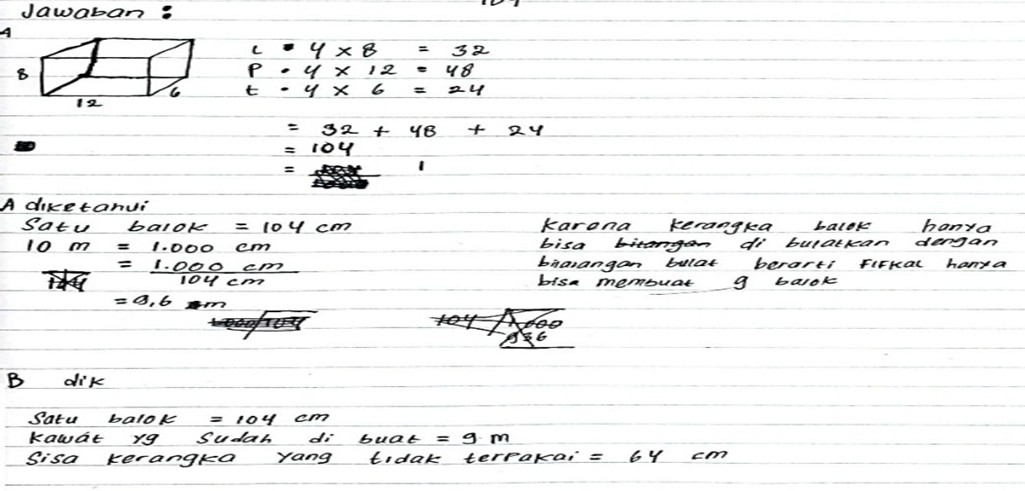 Jawaban :
A
8
12
6
L • 4 x 8 = 32
P • 4 x 12 = 48
t • 4 x 6 = 24
= 32 + 48 + 24
= 104
=
A diketahui
Satu balok = 104 cm
10 m = 1.000 cm
= 1.000 cm
104 cm
= 9,6 m
Karena kerangka balok hanya
bisa bitangan di bulatkan dengan
bilangan bulat berarti FIFKAL hanya
bisa membuat 9 balok
104 1.000
936
B dik
Satu balok = 104 cm
Kawat yg sudah di buat = 9 m
Sisa kerangka yang tidak terpakai = 64 cm